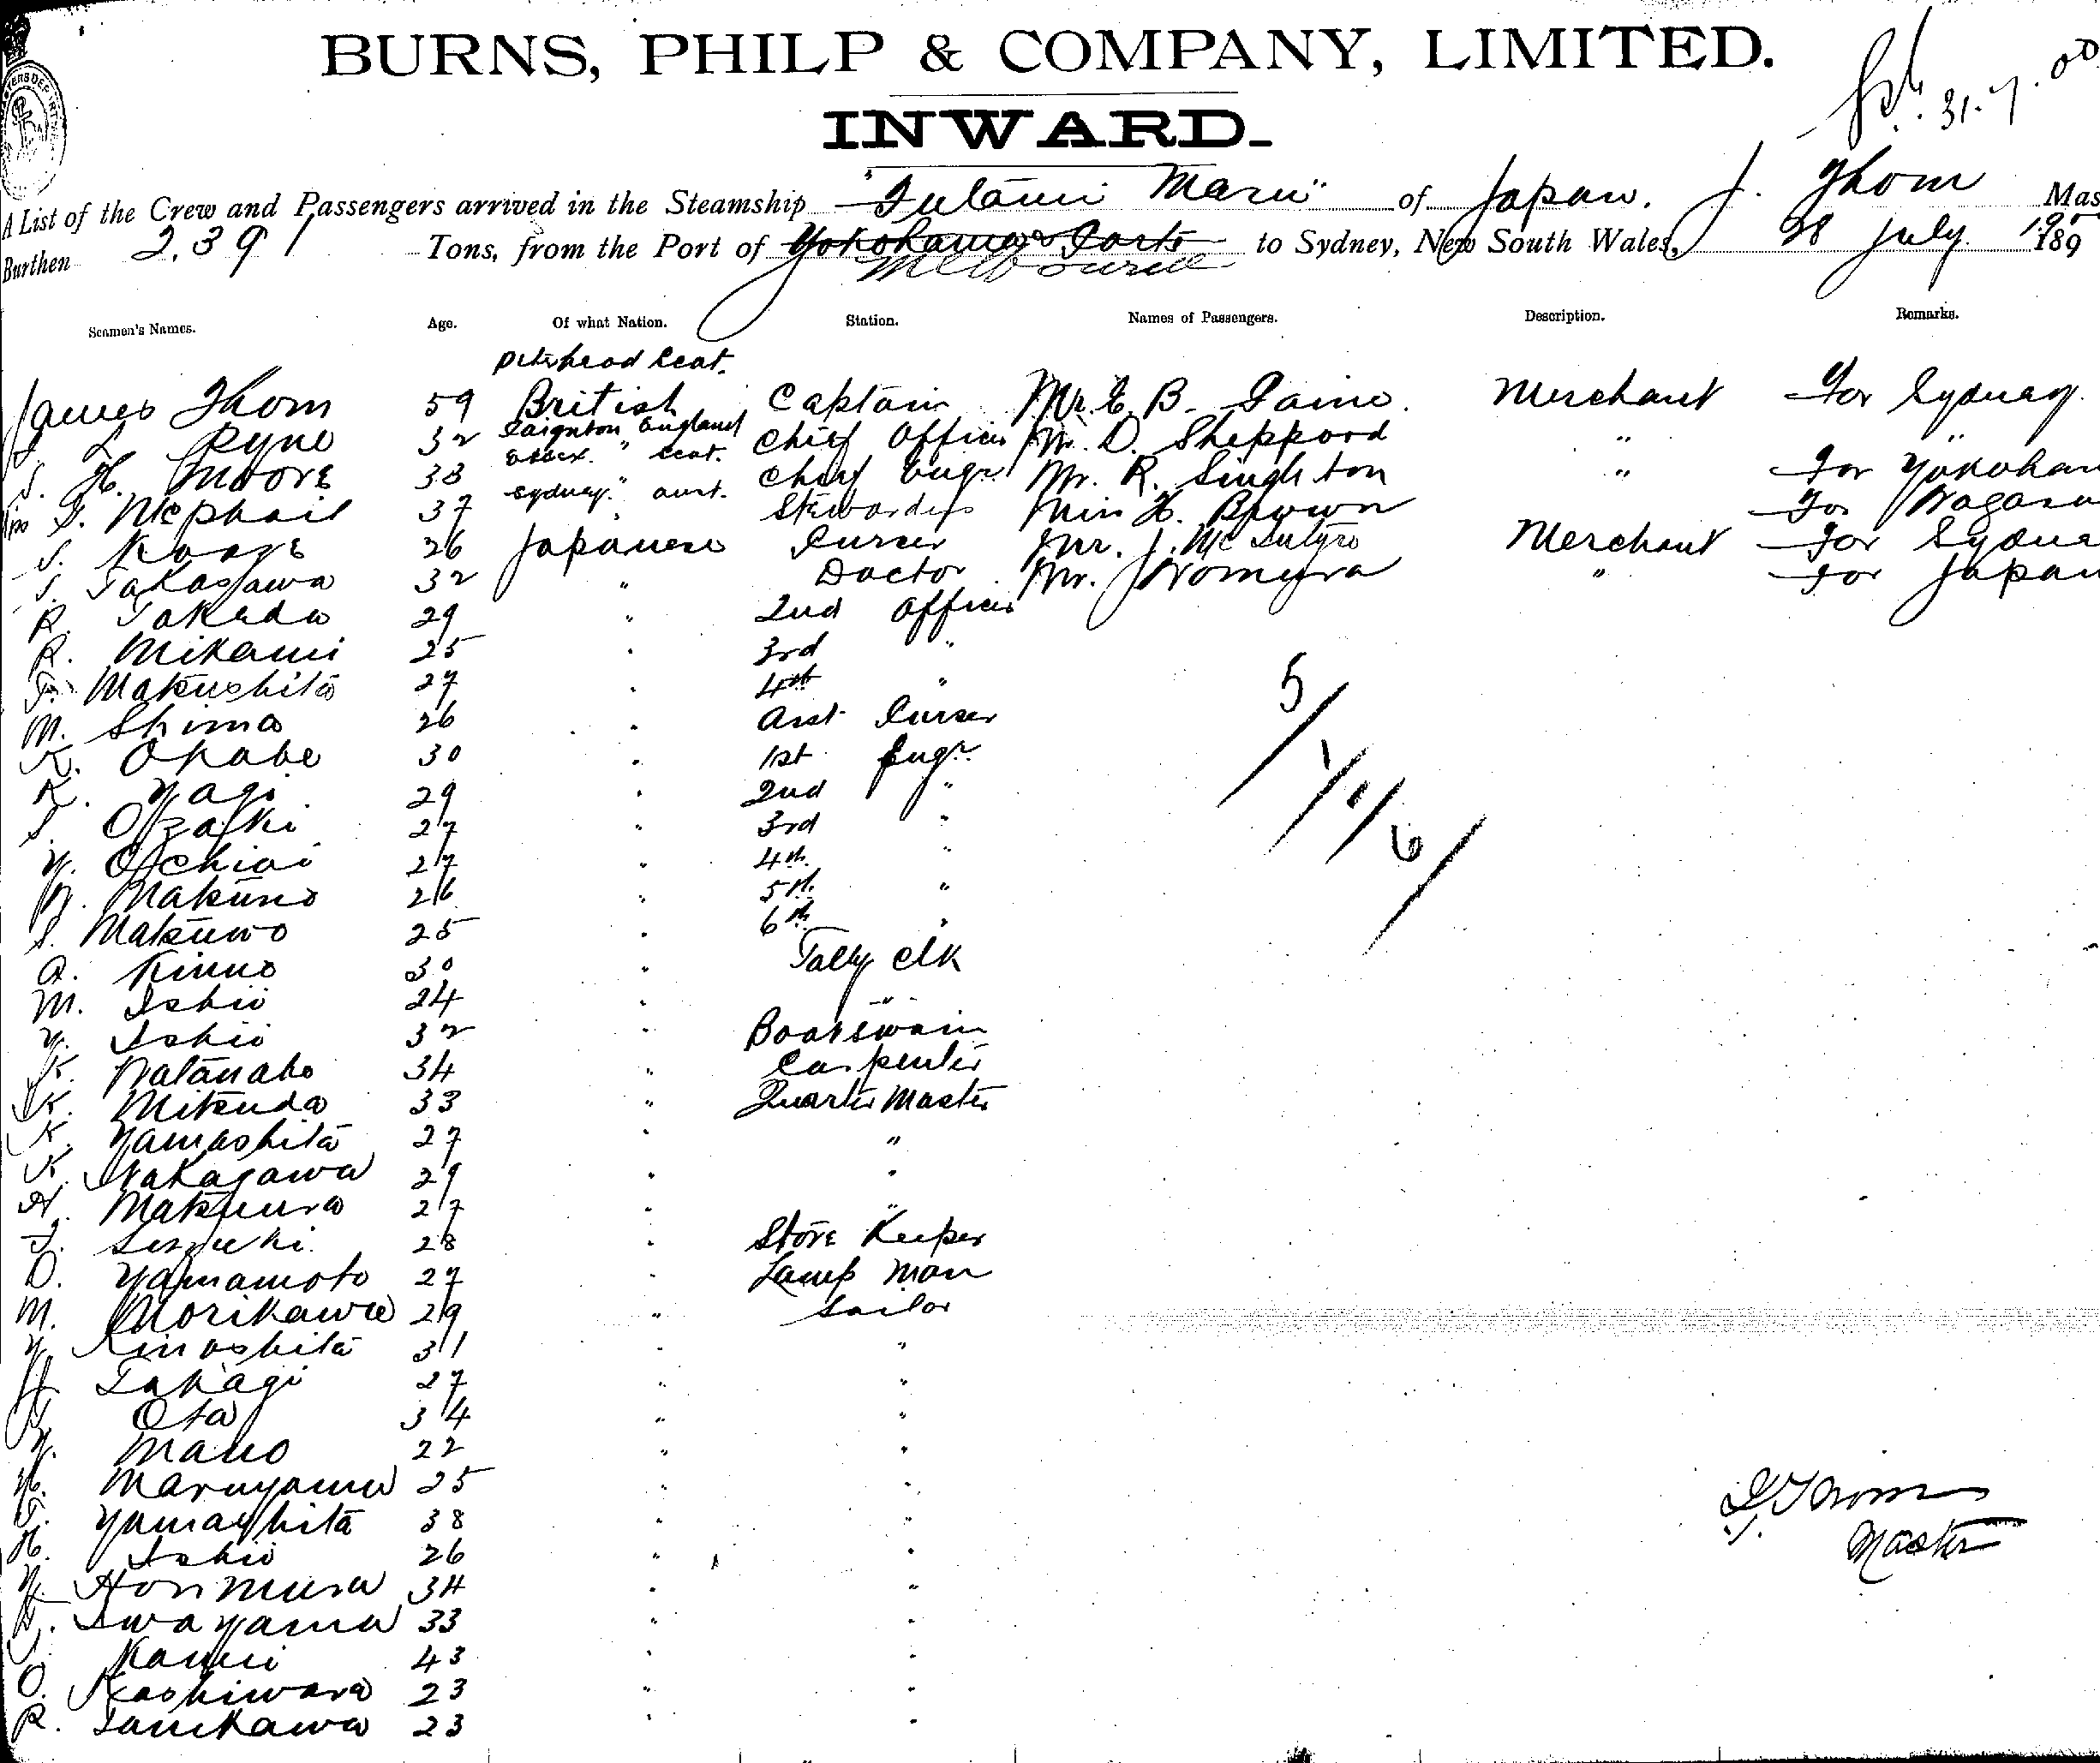 BURNS, PHILP & COMPANY, LIMITED.
31.7.00
INWARD.
A List of the Crew and Passengers arrived in the Steamship "Futami Maru" of Japan. J. Thom Mas
Burthen 2,391 Tons, from the Port of Yokohama & Ports Melbourne to Sydney, New South Wales, 28 July 189
Seamen's Names. Age. Of what Nation. Station. Names of Passengers. Description. Remarks.
Peterhead Scot.
James Thom 59 British Captain Mr. E. B. Merchant For Sydney.
Pyne 32 Paignton England Chief Officer Mr. D. Sheppard " "
S. H. Moore 33 " Scot. Chief Engr. Mr. R. Singleton " For Yokoham
G. McPhail 37 Sydney " aust. Stewardess Miss H. Brown For Nagasa
S. 26 Japanese Purser Mr. J. McIntyre Merchant For Sydne
S. Takagawa 32 " Doctor Mr. Nomura " For Japan
R. Takeda 29 " 2nd Officer
R. Mikami 25 " 3rd "
Matsushita 27 " 4th "
M. Shima 26 " Asst. Purser
K. Okabe 30 " 1st Engr.
K. Yagi 29 " 2nd "
S. Ozaki 27 " 3rd "
Y. Ochiai 27 " 4th "
N. Matsuno 26 " 5th "
S. Matsuwo 25 " 6th "
Kinno 30 " Tally Clk
M. Ishii 24 " "
Y. Ishii 32 " Boatswain
K. Watanabe 34 " Carpenter
K. Mitsuda 33 " Quarter Master
K. Yamashita 27 " "
K. Nakagawa 29 " "
Matsuura 27 " "
Suzuki 28 " Store Keeper
D. Yamamoto 27 " Lamp Man
M. Morikawa 29 " Sailor
Y. Kinoshita 31 " "
Takagi 27 " "
Ota 34 " "
Y. Mano 22 " "
Maruyama 25 " "
T. Yamashita 38 " "
H. Ishii 26 " "
Y. Horimura 34 " "
Iwayama 33 " "
Kamei 43 " "
O. Kashiwara 23 " "
R. Tanikawa 23 " "
5/1/11/6/
J. Thom
Master